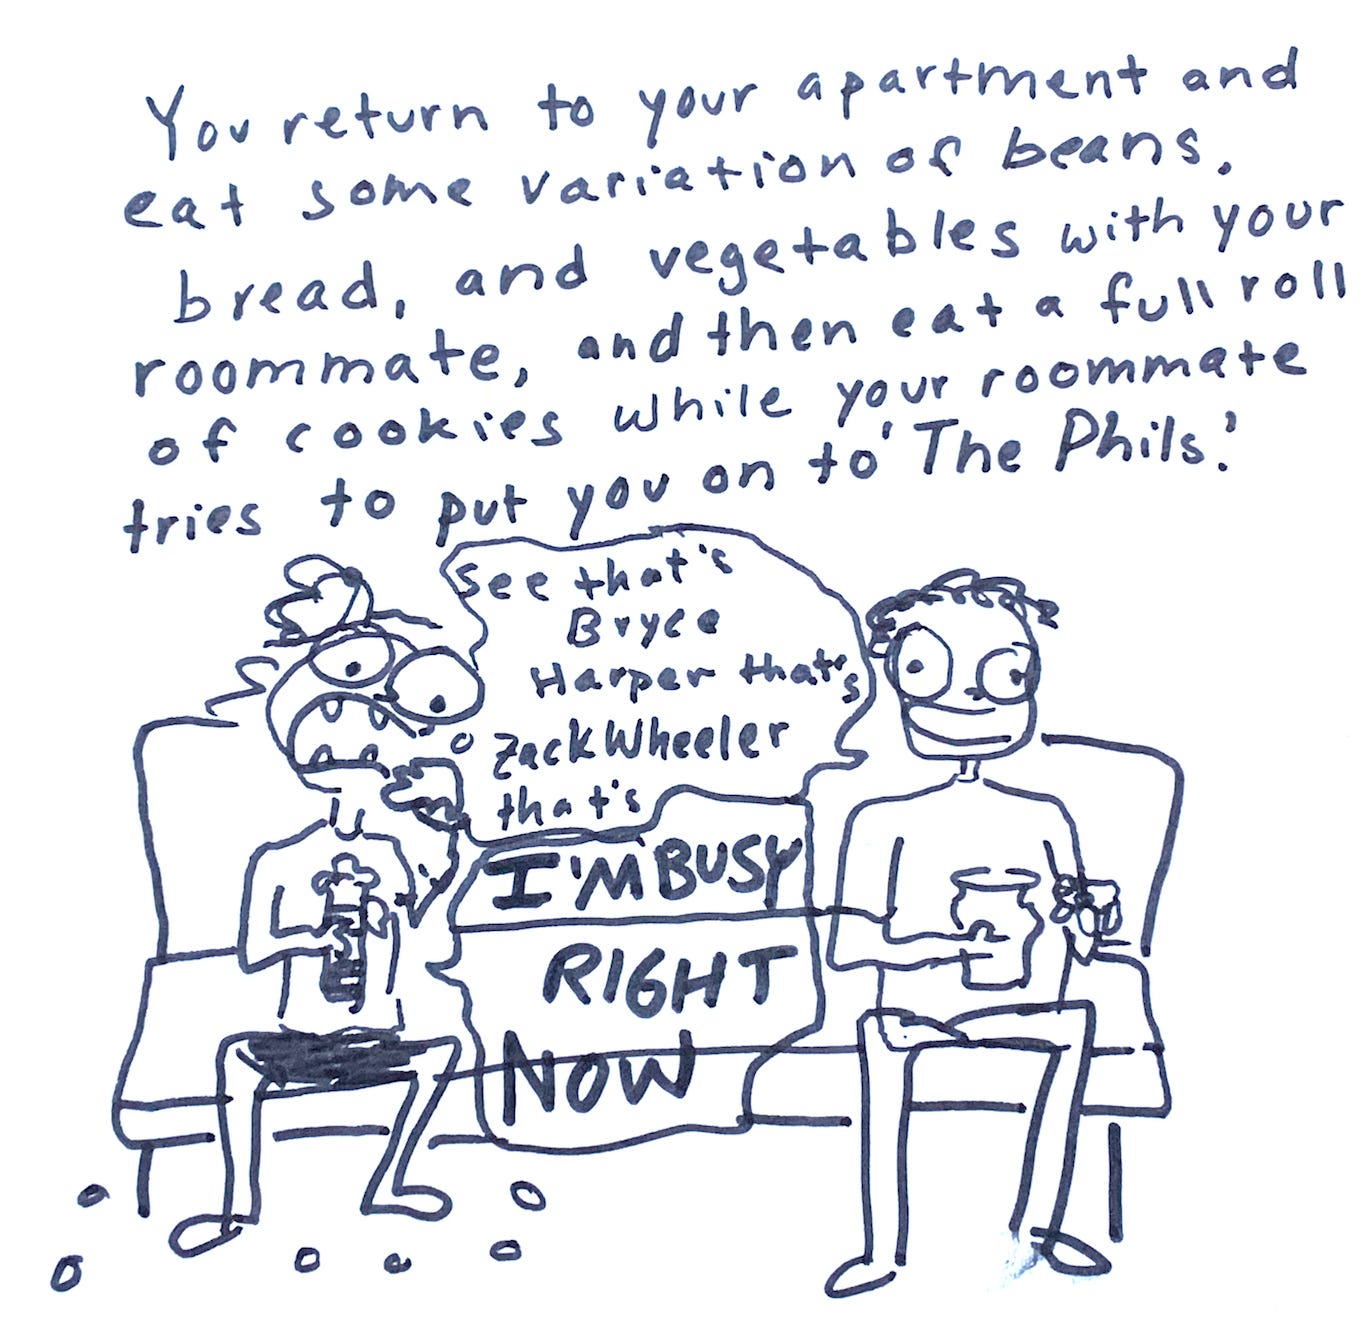 You return to your apartment and
eat some variation of beans,
bread, and vegetables with your
roommate, and then eat a full roll
of cookies while your roommate
tries to put you on to 'The Phils.'
See that's
Bryce
Harper that's
Zack Wheeler
that's
I'M BUSY
RIGHT
NOW